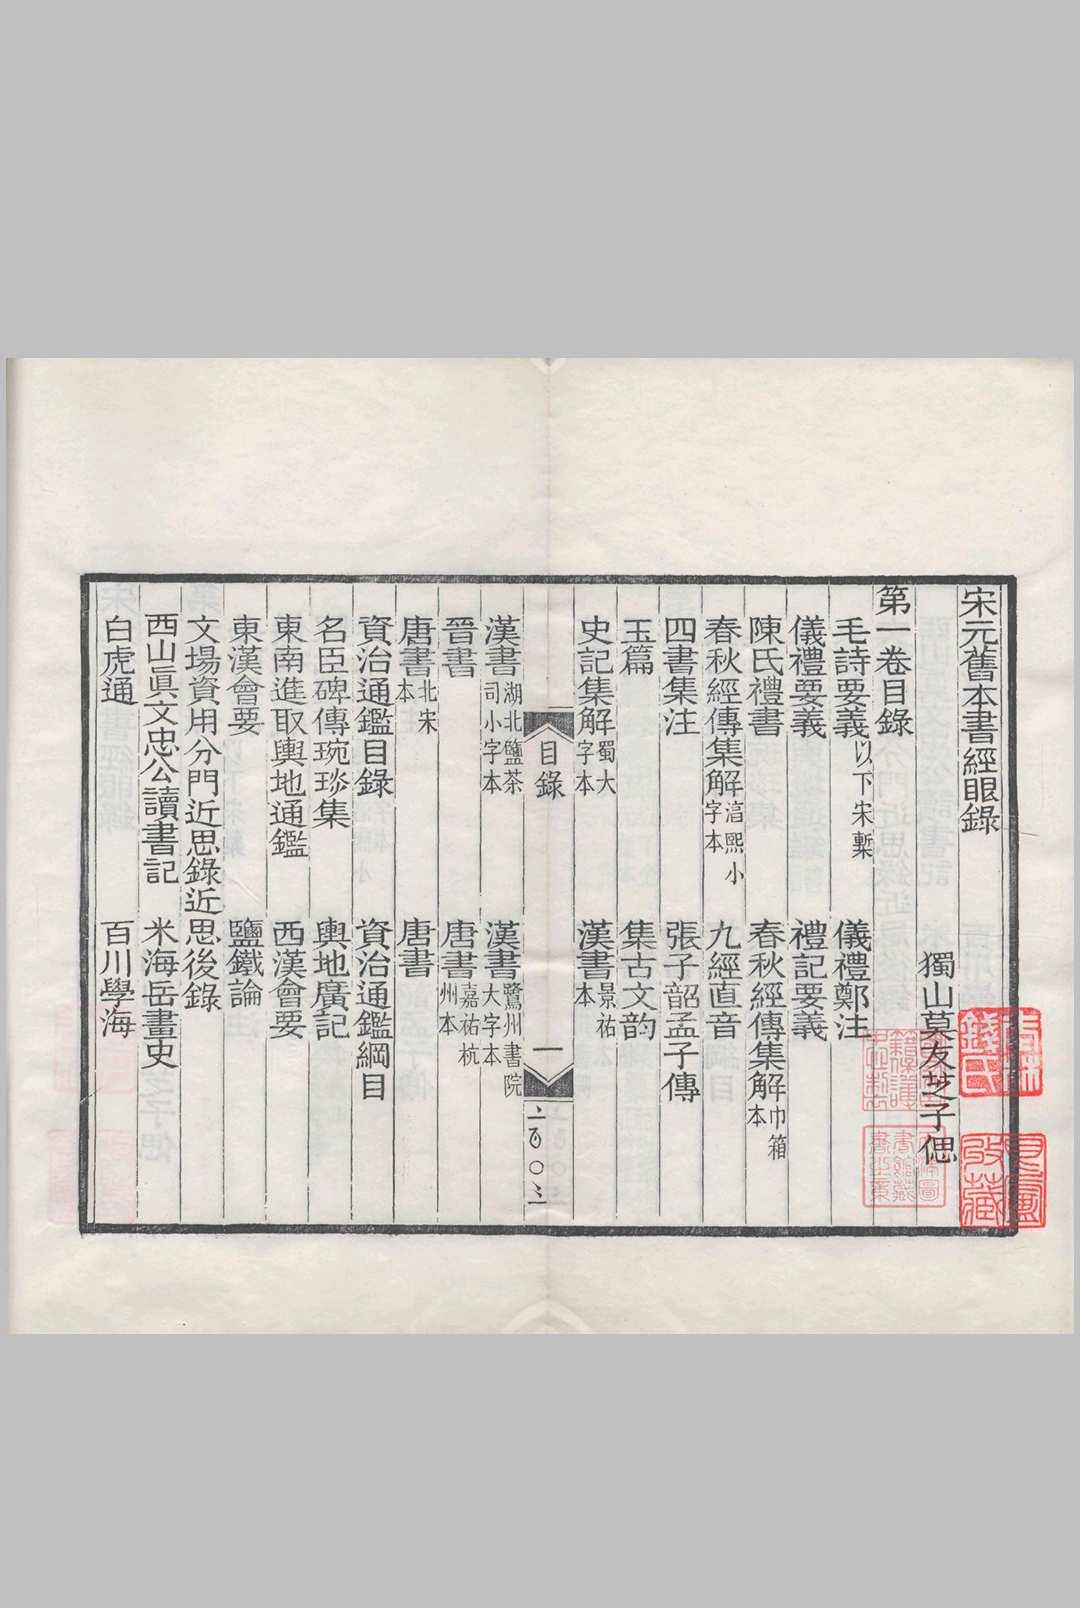 宋元舊本書經眼錄
獨山莫友芝子偲
第一卷目錄
毛詩要義以下宋槧　儀禮鄭注
儀禮要義　禮記要義
陳氏禮書　春秋經傳集解巾箱本
春秋經傳集解淳熙小字本　九經直音
四書集注　張子韶孟子傳
玉篇　集古文韵
史記集解蜀大字本　漢書景祐本
目錄　一
漢書湖北鹽茶司小字本　漢書鷺州書院大字本
晉書　唐書嘉祐杭州本
唐書北宋本　唐書
資治通鑑目錄　資治通鑑綱目
名臣碑傳琬琰集　輿地廣記
東南進取輿地通鑑　西漢會要
東漢會要　鹽鐵論
文場資用分門近思錄近思後錄
西山眞文忠公讀書記　米海岳畫史
白虎通　百川學海